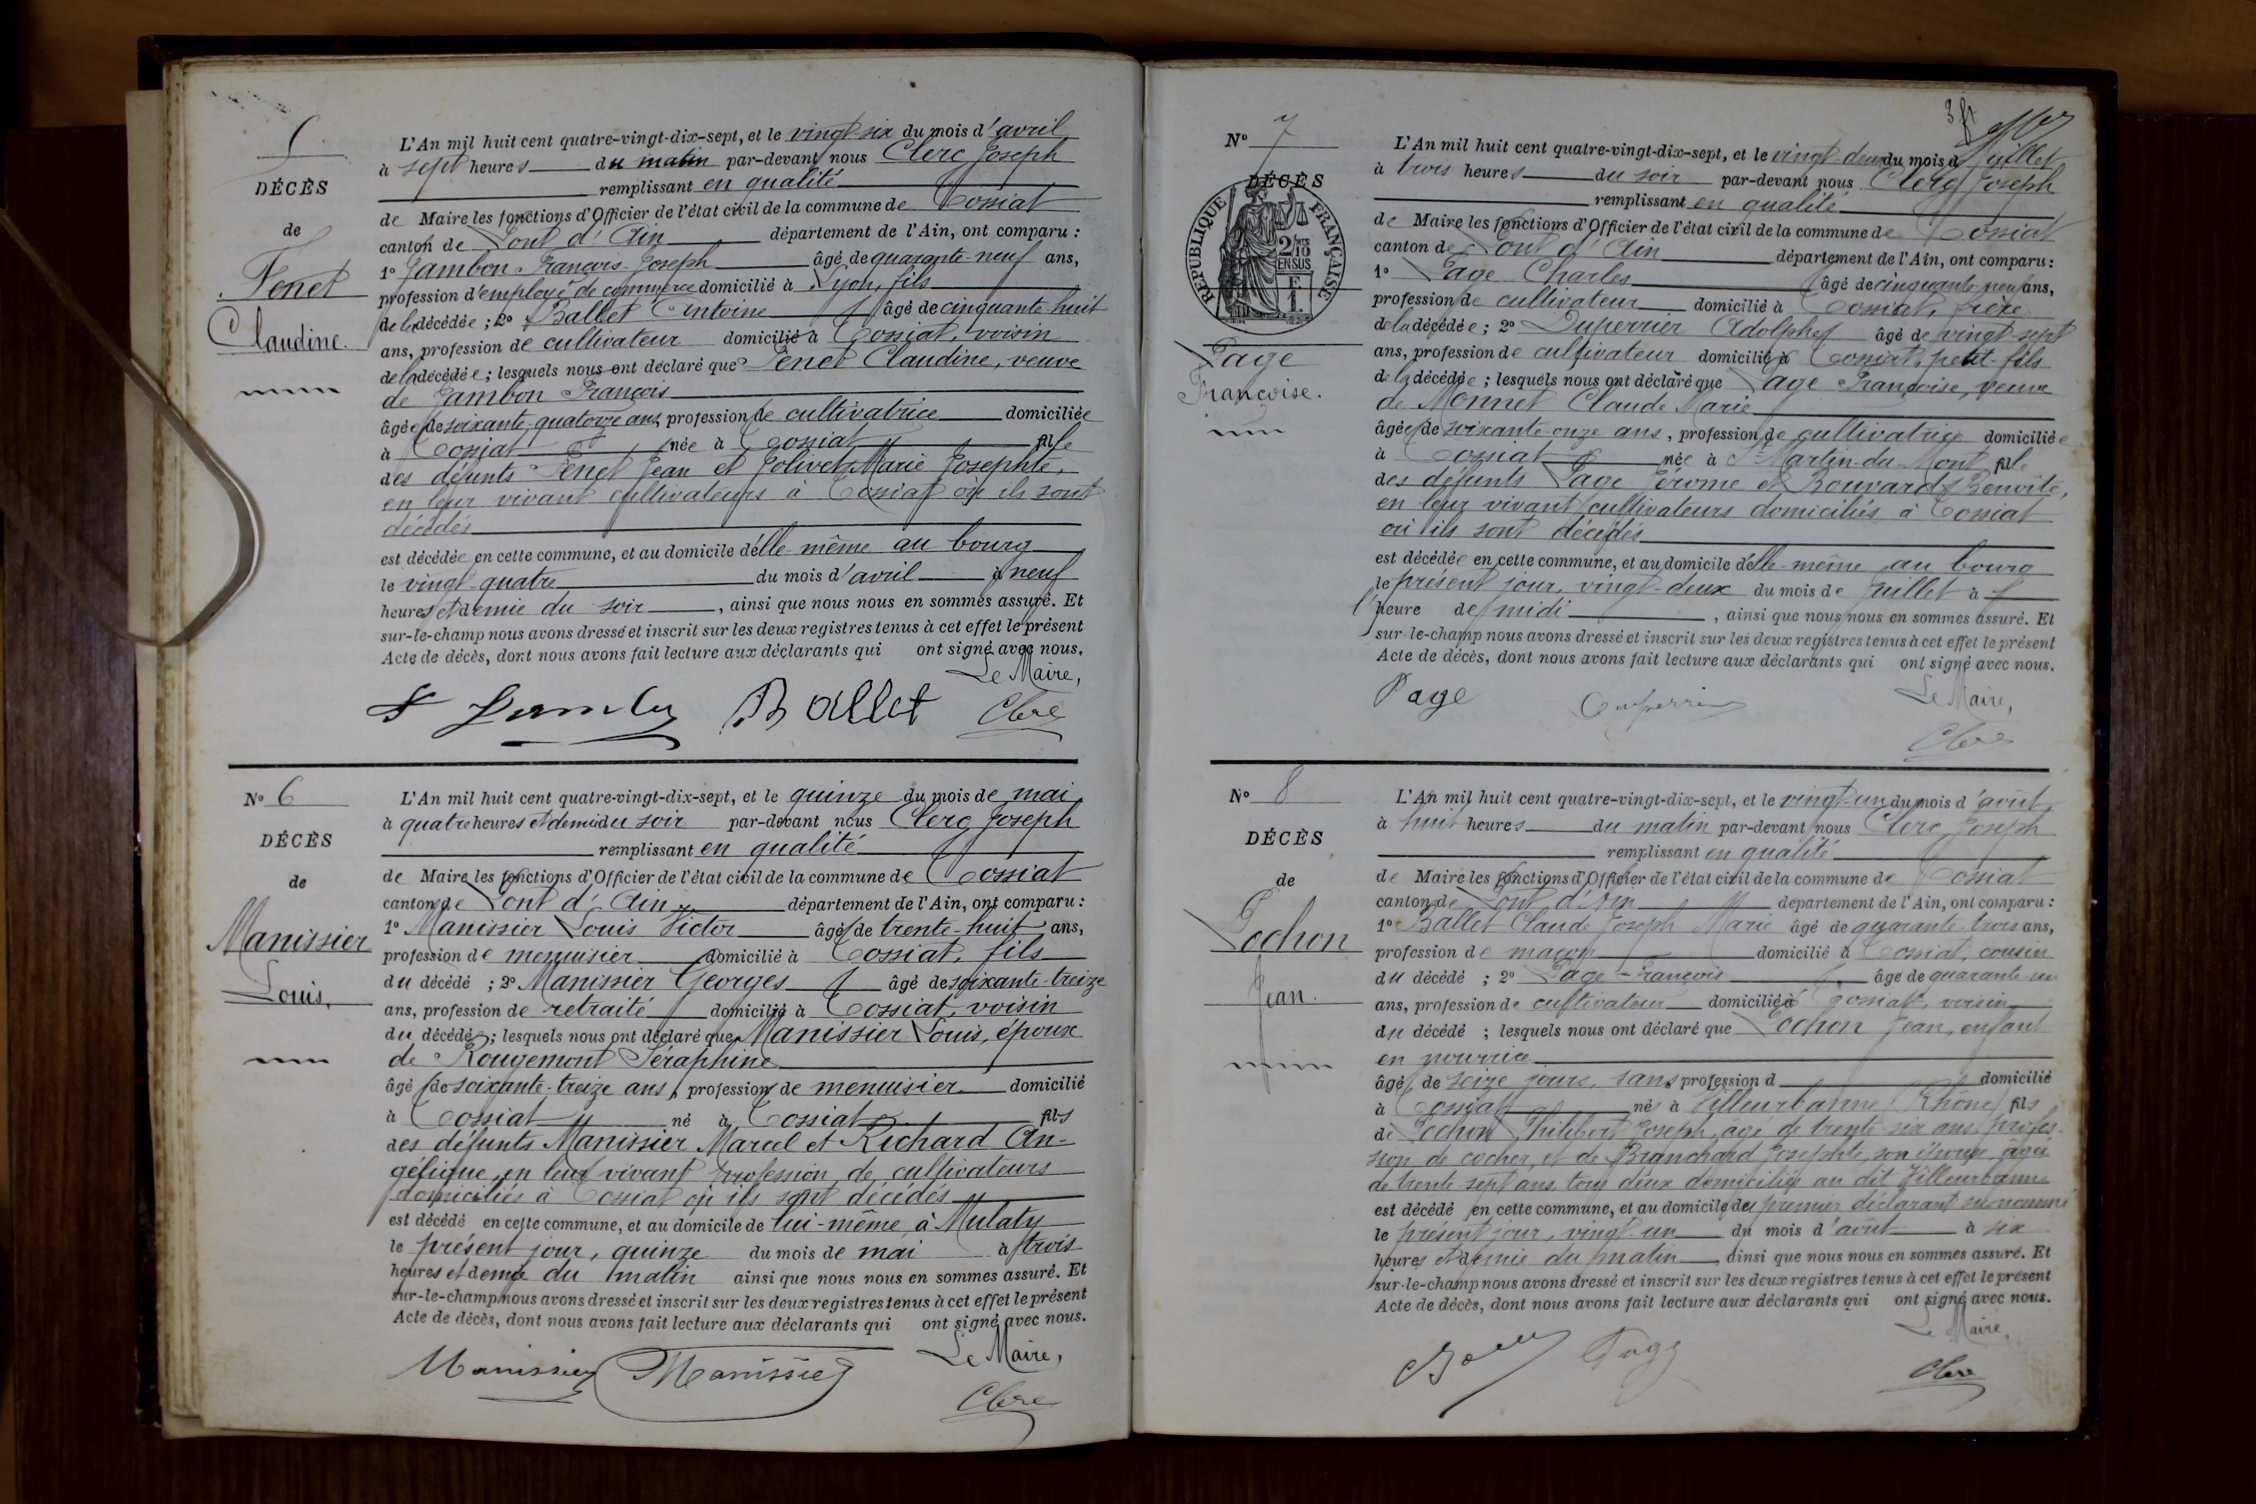 5
DÉCÈS
de
Tenet
Claudine.
L'An mil huit cent quatre-vingt-dix-sept, et le vingt six du mois d'avril
à sept heures du matin par-devant nous Clerc Joseph
remplissant en qualité
de Maire les fonctions d'Officier de l'état civil de la commune de Tossiat
canton de Pont d'Ain département de l'Ain, ont comparu :
1° Jambon François Joseph âgé de quarante-neuf ans,
profession d'employé de commerce domicilié à Lyon, fils
de la décédée ; 2° Ballet Antoine âgé de cinquante-huit
ans, profession de cultivateur domicilié à Tossiat, voisin
de la décédée ; lesquels nous ont déclaré que Tenet Claudine, veuve
de Jambon François
âgée de soixante-quatorze ans, profession de cultivatrice domiciliée
à Tossiat née à Tossiat fille
des défunts Tenet Jean et Jolivet Marie Josephte,
en leur vivant cultivateurs à Tossiat où ils sont
décédés
est décédée en cette commune, et au domicile d'elle-même au bourg
le vingt-quatre du mois d'avril à neuf
heures et demie du soir, ainsi que nous nous en sommes assuré. Et
sur-le-champ nous avons dressé et inscrit sur les deux registres tenus à cet effet le présent
Acte de décès, dont nous avons fait lecture aux déclarants qui ont signé avec nous.
Le Maire,
Ballet Clerc
N° 6
DÉCÈS
de
Manissier
Louis,
L'An mil huit cent quatre-vingt-dix-sept, et le quinze du mois de mai
à quatre heures et demie du soir par-devant nous Clerc Joseph
remplissant en qualité
de Maire les fonctions d'Officier de l'état civil de la commune de Tossiat
canton de Pont d'Ain département de l'Ain, ont comparu :
1° Manissier Louis Victor âgé de trente-huit ans,
profession de menuisier domicilié à Tossiat, fils
du décédé ; 2° Manissier Georges âgé de soixante-treize
ans, profession de retraité domicilié à Tossiat, voisin
du décédé ; lesquels nous ont déclaré que Manissier Louis, époux
de Rougemont Séraphine
âgé de soixante-treize ans, profession de menuisier domicilié
à Tossiat né à Tossiat fils
des défunts Manissier Marcel et Richard An-
gélique, en leur vivant profession de cultivateurs
domiciliés à Tossiat où ils sont décédés
est décédé en cette commune, et au domicile de lui-même, à Mulaty
le présent jour, quinze du mois de mai à trois
heures et demie du matin ainsi que nous nous en sommes assuré. Et
sur-le-champ nous avons dressé et inscrit sur les deux registres tenus à cet effet le présent
Acte de décès, dont nous avons fait lecture aux déclarants qui ont signé avec nous.
Le Maire,
Manissier Manissier Clerc
N° 7
DÉCÈS
RÉPUBLIQUE FRANÇAISE
2/10 EN SUS
Page
Françoise.
L'An mil huit cent quatre-vingt-dix-sept, et le vingt-deux du mois de Juillet
à trois heures du soir par-devant nous Clerc Joseph
remplissant en qualité
de Maire les fonctions d'Officier de l'état civil de la commune de Tossiat
canton de Pont d'Ain département de l'Ain, ont comparu :
1° Page Charles âgé de cinquante-neuf ans,
profession de cultivateur domicilié à Tossiat, frère
de la décédée ; 2° Duperrier Adolphe âgé de vingt-sept
ans, profession de cultivateur domicilié à Tossiat, petit-fils
de la décédée ; lesquels nous ont déclaré que Page Françoise, veuve
de Monnet Claude Marie
âgée de soixante-onze ans, profession de cultivatrice domiciliée
à Tossiat née à St Martin-du-Mont fille
des défunts Page Jérome et Bouvard Benoîte,
en leur vivant cultivateurs domiciliés à Tossiat
où ils sont décédés
est décédée en cette commune, et au domicile d'elle-même au bourg
le présent jour, vingt-deux du mois de Juillet à
l'heure de midi, ainsi que nous nous en sommes assuré. Et
sur-le-champ nous avons dressé et inscrit sur les deux registres tenus à cet effet le présent
Acte de décès, dont nous avons fait lecture aux déclarants qui ont signé avec nous.
Page Duperrier Le Maire,
Clerc
N° 8
DÉCÈS
de
Pochon
Jean.
L'An mil huit cent quatre-vingt-dix-sept, et le vingt-un du mois d'août
à huit heures du matin par-devant nous Clerc Joseph
remplissant en qualité
de Maire les fonctions d'Officier de l'état civil de la commune de Tossiat
canton de Pont d'Ain département de l'Ain, ont comparu :
1° Ballet Claude Joseph Marie âgé de quarante-trois ans,
profession de maçon domicilié à Tossiat, cousin
du décédé ; 2° Page François âgé de quarante-un
ans, profession de cultivateur domicilié à Tossiat, voisin
du décédé ; lesquels nous ont déclaré que Pochon Jean, enfant
en nourrice
âgé de seize jours, sans profession d domicilié
à Tossiat né à Villeurbanne (Rhône) fils
de Pochon Philibert Joseph, agé de trente-six ans, profes-
sion de cocher, et de Branchard Josephte, son épouse, âgée
de trente sept ans, tous deux domiciliés au dit Villeurbanne
est décédé en cette commune, et au domicile du premier déclarant susnommé
le présent jour, vingt-un du mois d'août à six
heures et demie du matin, ainsi que nous nous en sommes assuré. Et
sur-le-champ nous avons dressé et inscrit sur les deux registres tenus à cet effet le présent
Acte de décès, dont nous avons fait lecture aux déclarants qui ont signé avec nous.
Le Maire,
Page Clerc